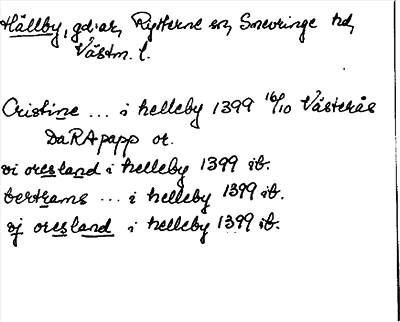 Hällby, gd:ar, Rytterne sn, Snevringe hd,
Västm. l.
Cristine ... i helleby 1399 16/10 Västerås
DaRApapp or.
vi oresland i helleby 1399 ib.
bertrams ... i helleby 1399 ib.
vj oresland i helleby 1399 ib.